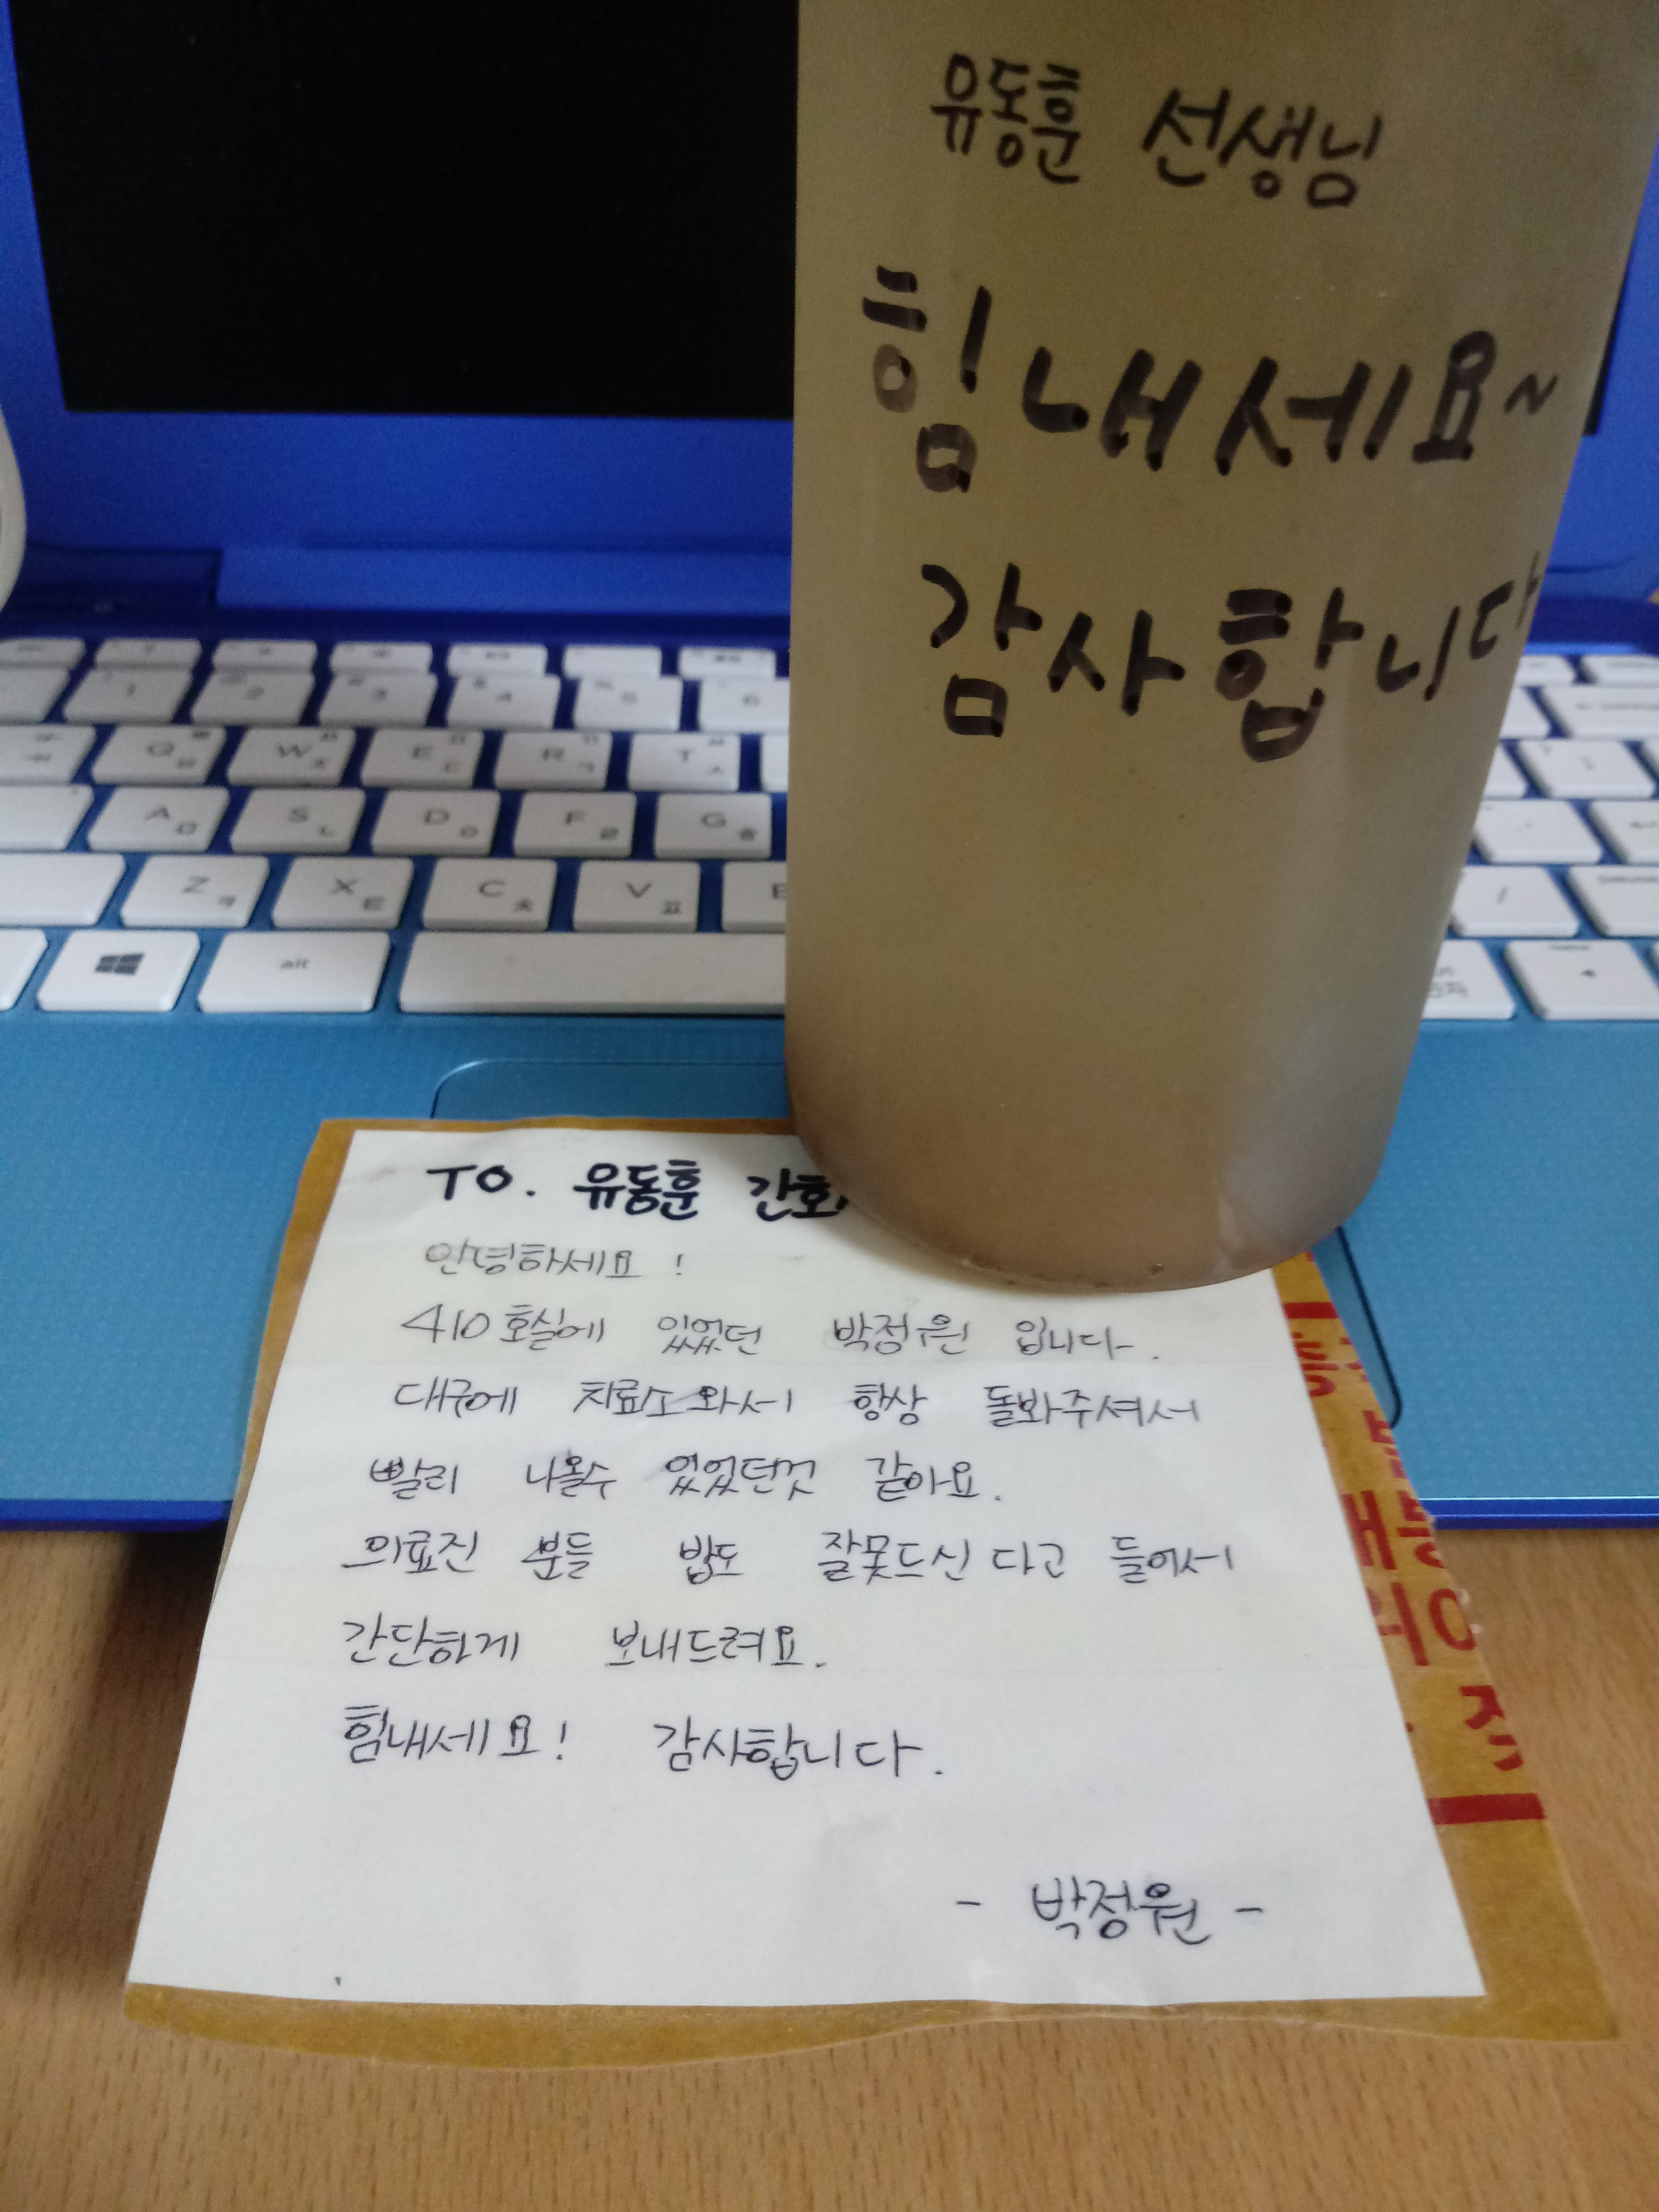 유동훈 선생님
힘내세요~
감사합니다
TO. 유동훈 간호
안녕하세요!
410호실에 있었던 박정원 입니다.
대구에 치료소와서 항상 돌봐주셔서
빨리 나올수 있었던것 같아요.
의료진 분들 밥도 잘못드신다고 들어서
간단하게 보내드려요.
힘내세요! 감사합니다.
- 박정원 -
1
2
3
4
5
6
Q W E R T
A ㅁ S ㄴ D ㅇ F ㄹ G ㅎ
Z ㅋ X ㅌ C ㅊ V ㅍ
alt